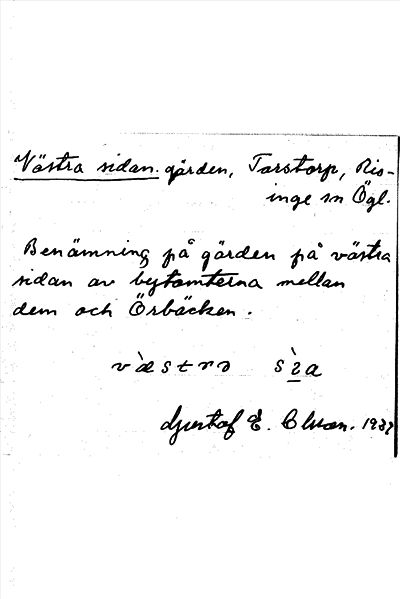 Västra sidan. gärden, Torstorp, Ris-
inge sn Ögl.
Benämning på gärden på västra
sidan av bytomterna mellan
dem och Örbäcken.
Gustaf E. Olsson.